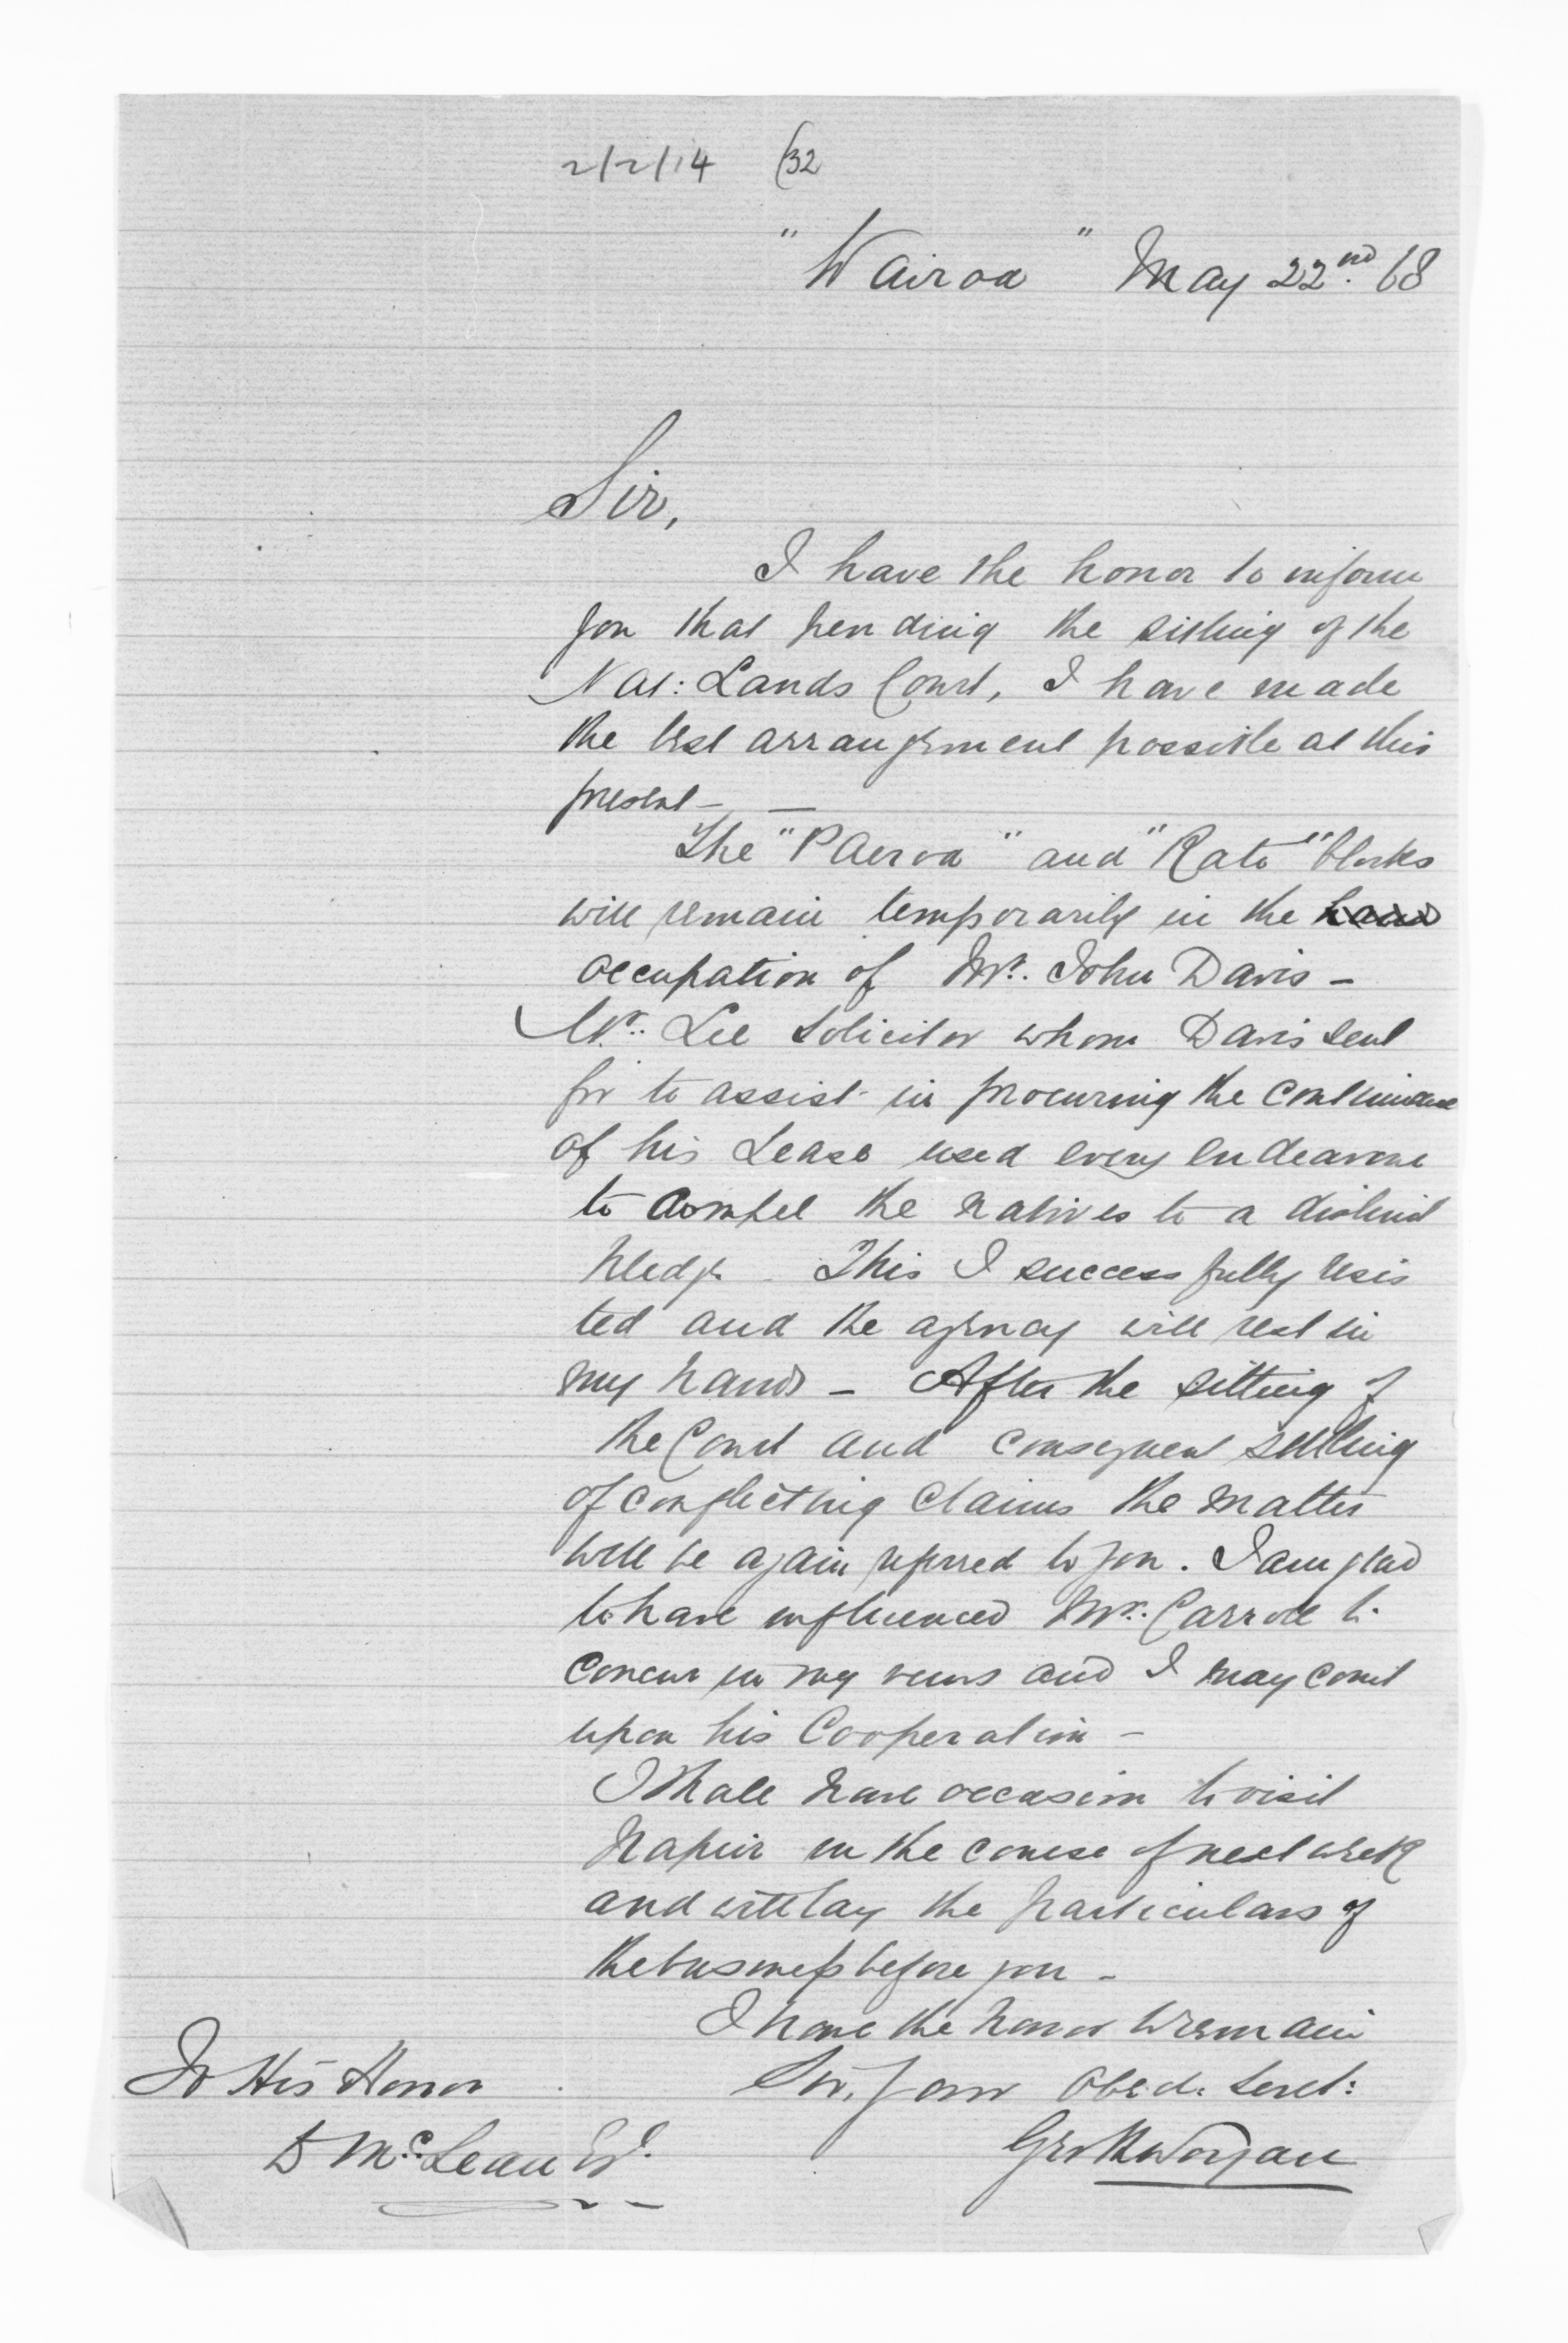 2/2/14 (32
"Wairoa" May 22nd. 68
Sir,
I have the honor to inform
you that pending the sitting of the
Nat: Lands Court, I have made
the best arrangement possible at this
present —
The "Paeroa" and "Rato" blocks
will remain temporarily in the hands
occupation of Mr. John Davis —
Mr. Lee Solicitor whom Davis sent
for to assist in procuring the continuance
of his Lease used every endeavour
to compel the natives to a distinct
pledge. This I successfully resis
ted and the agency will rest in
my hands — After the sitting of
the Court and consequent settling
of conflicting claims the matter
will be again referred to you. I am glad
to have influenced Mr. Carroll to
concur in my views and I may count
upon his Cooperation —
I shall have occasion to visit
Napier in the course of next week
and will lay the particulars of
the business before you —
I have the honor to remain
Sir, Your Obed. Servt:
Geo R Worgan
To His Honor
D McLean Esq.